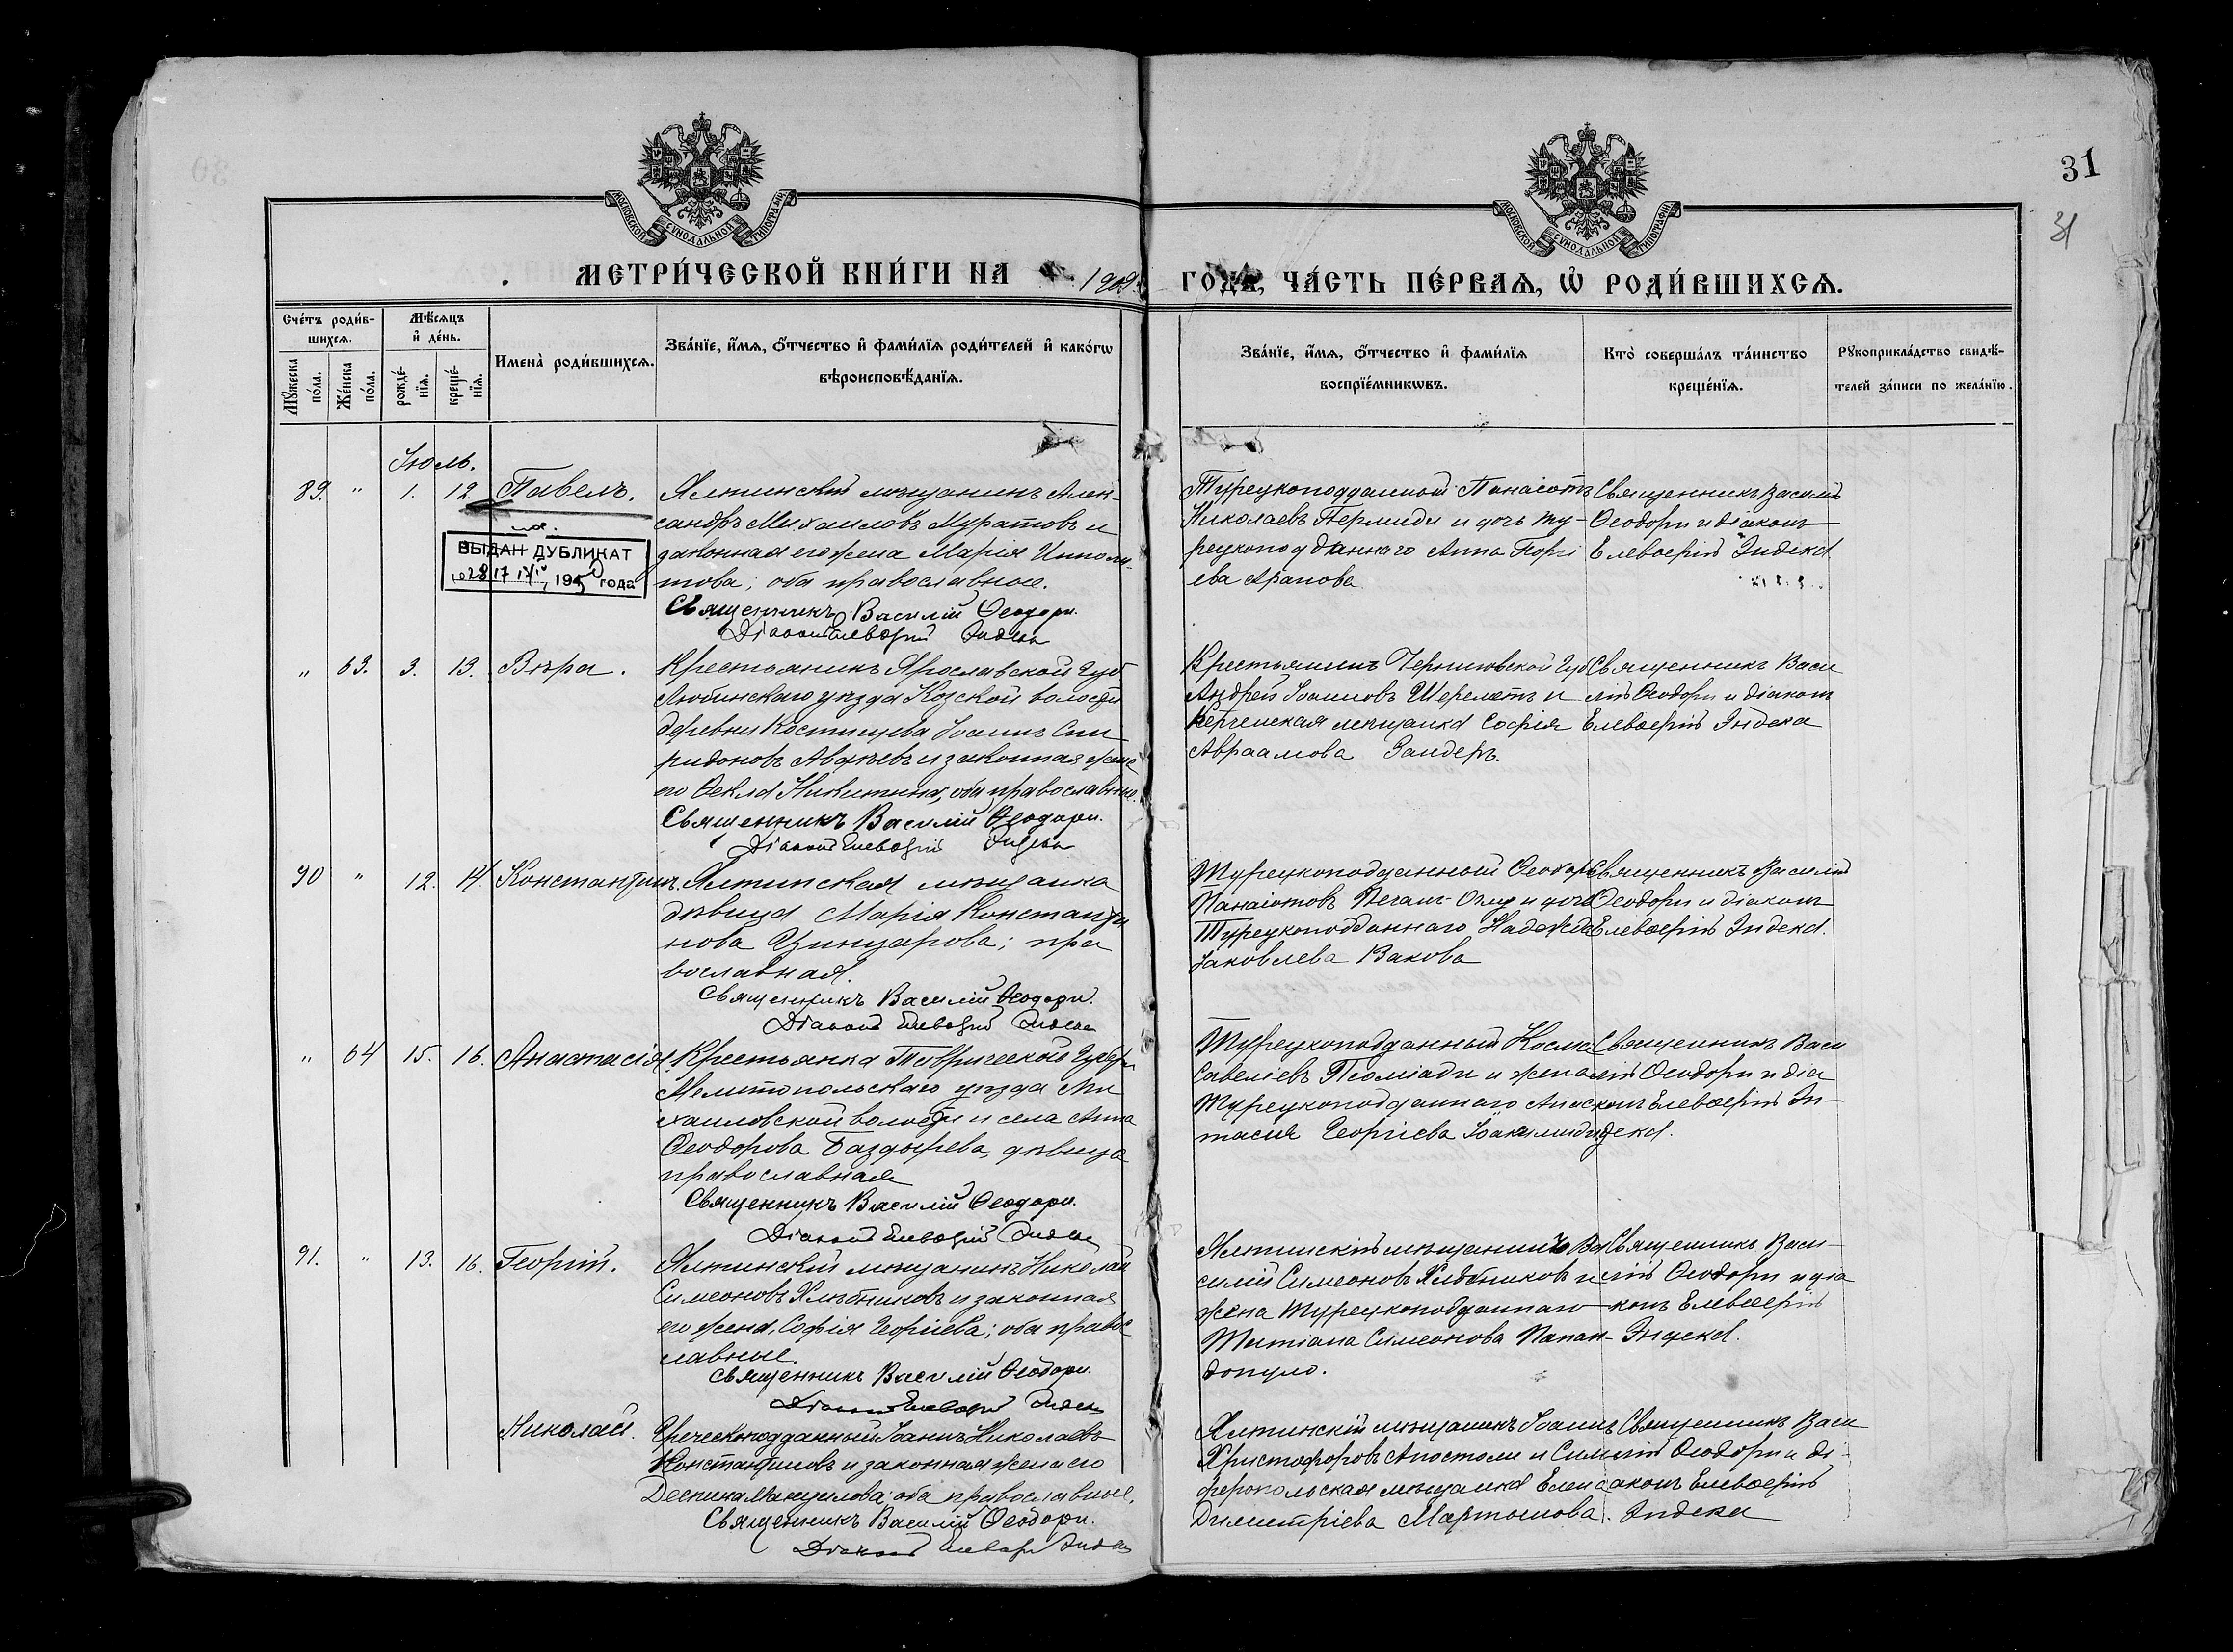 31
31
МОСКОВСКОЙ СѴНОДАЛЬНОЙ ТИПОГРАФІИ
МОСКОВСКОЙ СѴНОДАЛЬНОЙ ТИПОГРАФІИ
МЕТРИ́ЧЕСКОЙ КНИ́ГИ НА 1909
ГОДЪ, ЧА́СТЬ ПЕ́РВАѦ, Ѡ҆ РОДИ́ВШИХСѦ.
Сче́тъ роди́в-
шихсѧ.
Мꙋ́жеска по́ла.
Же́нска по́ла.
Мѣ́сѧцъ
и҆ де́нь.
рожде́-
нїѧ.
креще́-
нїѧ.
Имена̀ роди́вшихсѧ.
Зва́нїе, и҆́мѧ, ѻ҆́тчество и҆ фами́лїѧ роди́телей и҆ како́гѡ
вѣроисповѣ́данїѧ.
Зва́нїе, и҆́мѧ, ѻ҆́тчество и҆ фами́лїѧ
воспрїе́мникѡвъ.
Кто̀ соверша́лъ та́инство
креще́нїѧ.
Рꙋкоприкла́дство свидѣ́-
телей за́писи по жела́нїю.
Іюль.
89. " 1. 12. Павелъ.
ВЫДАН ДУБЛИКАТ
195 года
Ялтинскій мѣщанинъ Алек-
сандръ Михаиловъ Муратовъ и
законная его жена Марія Ипполи-
това; оба православные.
Священникъ Василій Ѳеодори.
Діаконъ Елевѳерій Индека
Турецкоподданный Панаіотъ
Николаевъ Пермиди и дочь ту-
рецкоподданнаго Анна
ева Арапова
Священникъ Василій
Ѳеодори и діаконъ
Елевѳерій Индека
" 63. 3. 13. Вѣра.
Крестьянинъ Ярославской губ
Любимскаго уѣзда Козской волости
деревни Іоаннъ Спи
ридоновъ Авдѣевъ и законная жена
его Ѳекла Никитина, оба православные.
Священникъ Василій Ѳеодори.
Діаконъ Елевѳерій Индека
Крестьянинъ Черниговской губ
Андрей Іоанновъ Шереметъ и
Керченская мещанка Софія
Авраамова Зандеръ.
Священникъ Васи
лій Ѳеодори и діаконъ
Елевѳерій Индека
90 " 12. 14. Константинъ.
Ялтинская мѣщанка
дѣвица Марія Константи
нова Цинцарова; пра
вославная.
Священникъ Василій Ѳеодори.
Діаконъ Елевѳерій Индека
Турецкоподданный Ѳеодоръ
Панаіотовъ и дочь
Турецкоподданнаго Надежда
Іаковлева Вакова
Священникъ Василій
Ѳеодори и діаконъ
Елевѳерій Индека.
" 64 15. 16. Анастасія.
Крестьянка Таврической губерн
Мелитопольскаго уѣзда Ми
хаиловской волости и села Анна
Ѳеодорова Баздырева, дѣвица
православная
Священникъ Василій Ѳеодори.
Діаконъ Елевѳерій Индека
Турецкоподданный Косма
Савеліевъ и жена
Турецкоподданнаго Анас
тасія Георгіева Іоакимиди
Священникъ Васи
лій Ѳеодори и діа
конъ Елевѳерій Ин-
дека.
91. " 13. 16. Георгій.
Ялтинскій мѣщанинъ Николай
Симеоновъ Хлѣбниковъ и законная
его жена, Софія Георгіева; оба правос
лавные.
Священникъ Василій Ѳеодори.
Діаконъ Елевѳерій Индека
Ялтинскій мѣщанинъ Ва
силій Симеоновъ Хлѣбниковъ и
жена Турецкоподданнаго
Татіана Симеонова Папан-
допуло.
Священникъ Васи-
лій Ѳеодори и діа
конъ Елевѳерій
Индека.
Николай.
Греческоподданный Іоаннъ Николаевъ
Константиновъ и законная жена его
Деспина Мануилова оба православные.
Священникъ Василій Ѳеодори.
Діаконъ Елевѳерій Индека
Ялтинскій мѣщанинъ Іоаннъ
Христофоровъ Апостоли и Сим
феропольская мѣщанка Елена
Димитріева Мартынова.
Священникъ Васи
лій Ѳеодори и ді-
аконъ Елевѳерій
Индека